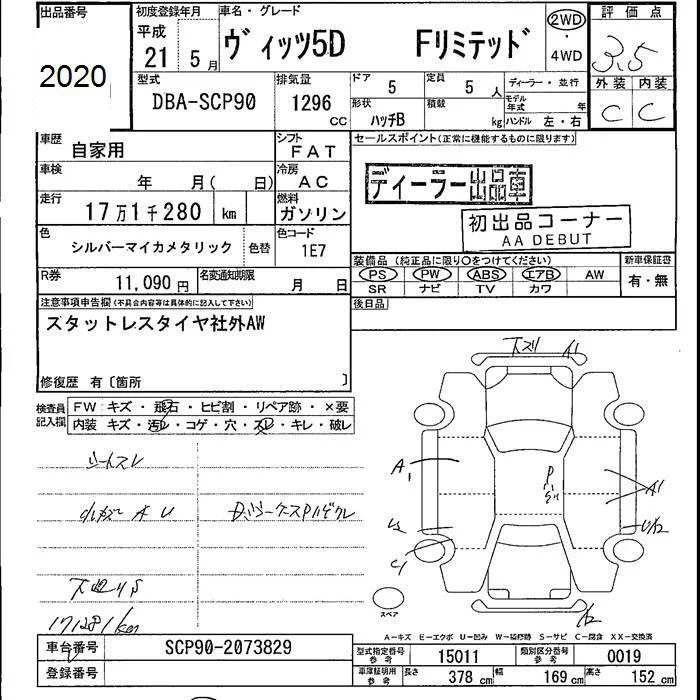 出品番号
2020
初度登録年月
平成
21 5 月
車名・グレード
ヴィッツ5D Fリミテッド
2WD
・
4WD
評価点
3.5
外装 内装
C C
型式
DBA-SCP90
排気量
1296
CC
ドア
5
定員
5 人
形状
ハッチB
積載
kg
ディーラー・並行
モデル年式 年
ハンドル 左・右
車歴
自家用
シフト
FAT
車検
年 月( 日)
冷房
AC
走行
17万1千280 km
燃料
ガソリン
色
シルバーマイカメタリック
色替
色コード
1E7
R券
11,090 円
名変通知期限
月 日
セールスポイント(正常に機能するものに限ります)
ディーラー出品車
初出品コーナー
AA DEBUT
装備品(純正品に限り○をつけてください)
PS PW ABS エアB AW
SR ナビ TV カワ
新車保証書
有・無
後日品
注意事項申告欄(不具合内容等は具体的に記入して下さい)
スタットレスタイヤ社外AW
修復歴 有〔箇所 〕
検査員
記入欄
FW キズ・飛石・ヒビ割・リペア跡・×要
内装 キズ・汚レ・コゲ・穴・スレ・キレ・破レ
シートスレ
A U
下廻りS
171281km
A1
A1
A1
P
U2
C1
U2
A2
スペア
A-キズ E-エクボ U-凹み W-補修跡 S-サビ C-腐食 XX-交換済
車台番号
SCP90-2073829
登録番号
型式指定番号
参考
15011
類別区分番号
参考
0019
車庫証明用
参考
長さ 378 cm 幅 169 cm 高さ 152 cm